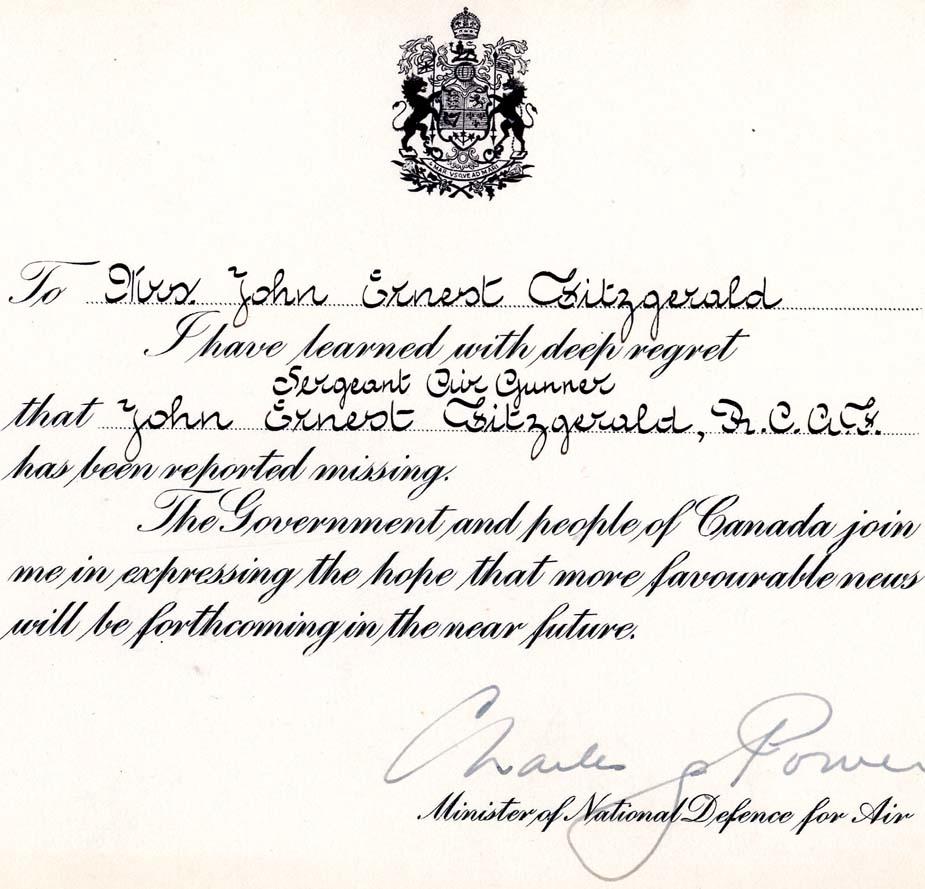 A MARI USQUE AD MARE
To Mrs. John Ernest Fitzgerald
I have learned with deep regret
Sergeant Air Gunner
that John Ernest Fitzgerald, R.C.A.F.
has been reported missing.
The Government and people of Canada join
me in expressing the hope that more favourable news
will be forthcoming in the near future.
Charles G Power
Minister of National Defence for Air